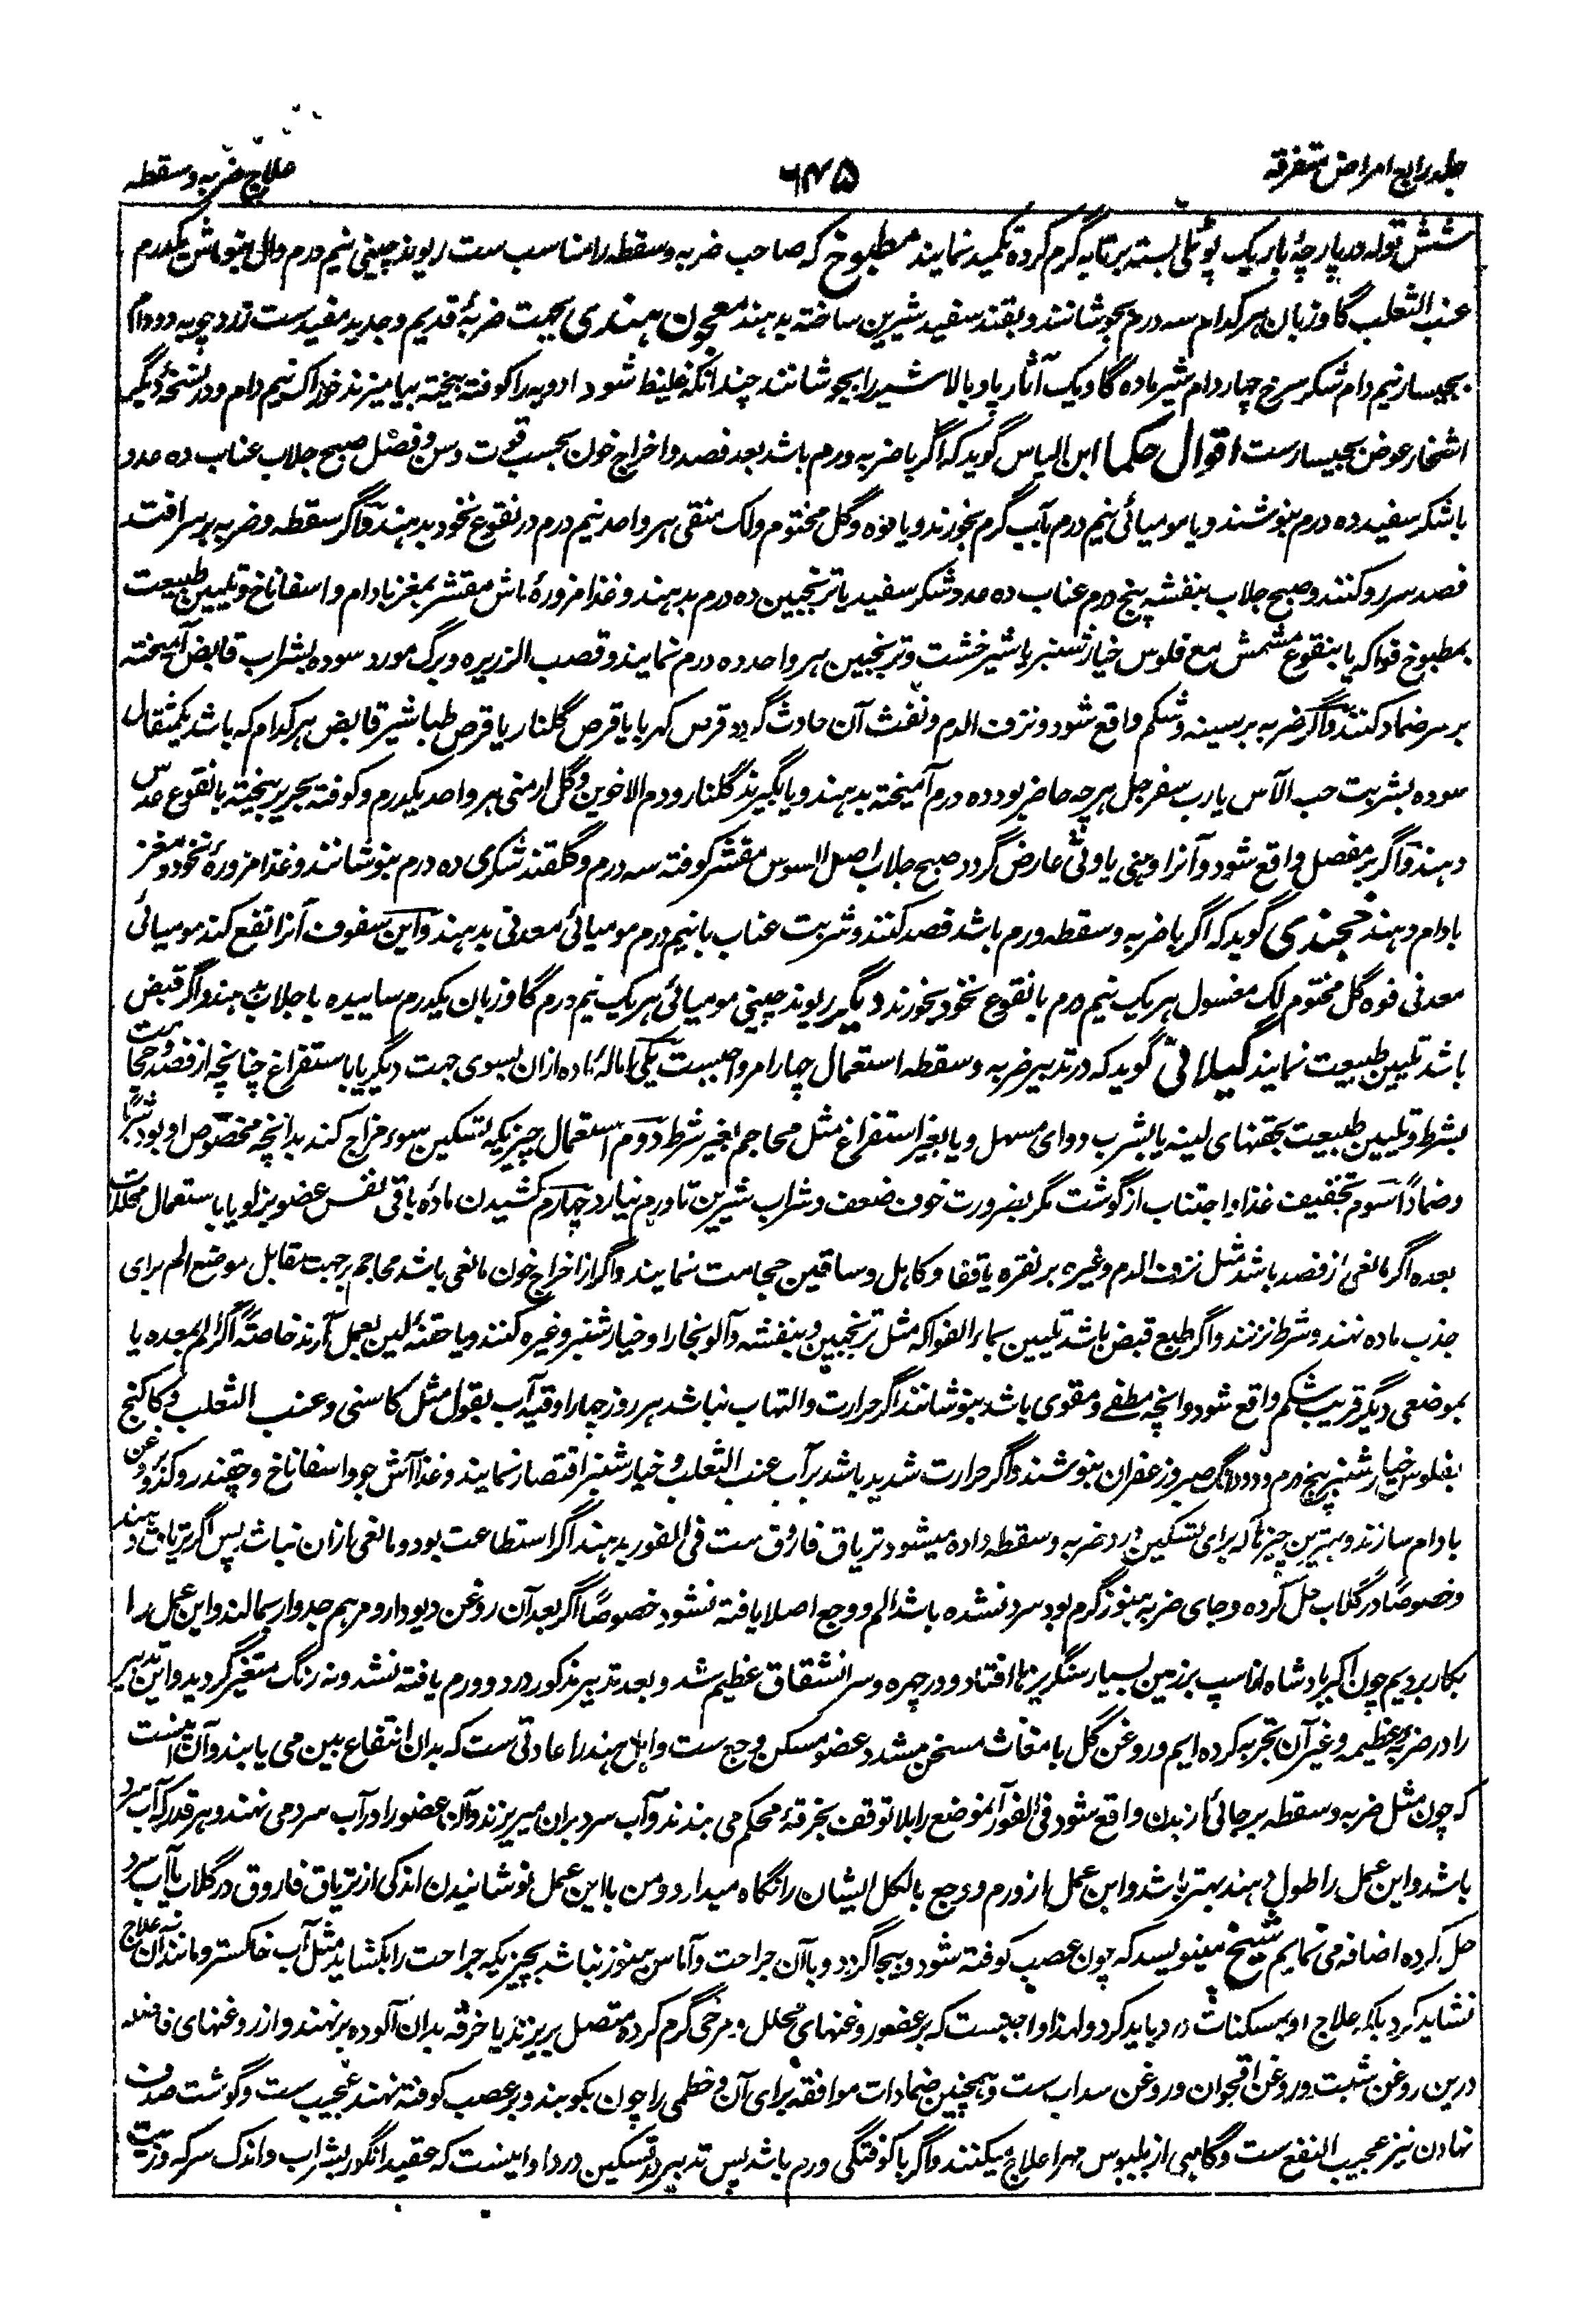 جلد رابع امراض متفرقه
۶۴۵
علاج ضربه و سقطه
شش توله در پارچهٔ باریک پوٹلی بسته بر تابه گرم کرده تکمید نمایند مطبوخ که صاحب ضربه و سقطه را مناسب ست ریوند چینی نیم درم وال بنو ماش یکدرم
عنب الثعلب گاوزبان هر کدام سه درم بجوشانند و بقند سفید شیرین ساخته بدهند معجون هندی بجهت ضربهٔ قدیم و جدید مفید ست زردچوبه دو دام
بجیسار نیم دام شکر سرخ چهار دام شیر ماده گاو یک آثار پاو بالا شیر را بجوشانند چندانکه غلیظ شود ادویه را کوفته بیخته بیامیزند خوراک نیم دام و در نسخهٔ دیگر
اشخار عوض بجیسار ست اقوال حکما ابن الیاس گوید که اگر با ضربه ورم باشد بعد فصد و اخراج خون بحسب قوت و سن و فصل صبح جلاب عناب ده عدد
با شکر سفید ده درم بنوشند و یا مومیائی نیم درم بآب گرم بخورند و یا فوه و گل مختوم و لک منقی هر واحد نیم درم در نقوع نخود بدهند و اگر سقطه و ضربه بر سر افتد
فصد سررو کنند و صبح جلاب بنفشه پنج درم عناب ده عدد و شکر سفید یا ترنجبین ده درم بدهند و غذا مزورهٔ ماش مقشر بمغز بادام و اسفاناخ و تلیین طبیعت
بمطبوخ فواکه یا بنقوع مشمش مع فلوس خیارشنبر یا شیرخشت و ترنجبین هر واحد ده درم نمایند و قصب الزریره و برگ مورد سوده بشراب قابض آمیخته
بر سر ضماد کنند و اگر ضربه بر سینه و شکم واقع شود و نزف الدم و نفث آن حادث گردد قرص کهربا یا قرص گلنار یا قرص طباشیر قابض هر کدام که باشد یکمثقال
سوده بشربت حب الآس یا رب سفرجل هر چه حاضر بود ده درم آمیخته بدهند و یا بگیرند گلنار و دم الاخوین و گل ارمنی هر واحد یکدرم و کوفته بحریر بیخته با نقوع عدس
دهند و اگر بر مفصل واقع شود و آنرا وهنی یا وثی عارض گردد صبح جلاب اصل السوس مقشر کوفته سه درم و گلقند شکری ده درم بنوشانند و غذا مزورهٔ نخود و مغز
بادام دهند خجندی گوید که اگر با ضربه و سقطه ورم باشد فصد کنند و شربت عناب با نیم درم مومیائی معدنی بدهند و این سفوف آنرا نفع کند مومیائی
معدنی فوه گل مختوم لک مغسول هر یک نیم درم با نقوع نخود بخورند دیگر ریوند چینی مومیائی هر یک نیم درم گاوزبان یکدرم ساییده با جلاب بدهند و اگر قبض
باشد تلیین طبیعت نمایند گیلانی گوید که در تدبیر ضربه و سقطه استعمال چهار امر واجبست یکی امالهٔ ماده ازان بسوی جهت دیگر یا باستفراغ چنانچه از فصد و حجامت
بشرط و تلیین طبیعت بحقنهای لینه یا بشرب دوای مسهل و یا بغیر استفراغ مثل محاجم بغیر شرط دوم استعمال چیزیکه تسکین سوء مزاج کند بدانچه مخصوص او بود شرباً
و ضماداً سوم تخفیف غذا و اجتناب از گوشت مگر بضرورت خوف ضعف و شراب شیرین تا ورم نیارد چهارم کشیدن مادهٔ باقی نفس عضو بزلو یا باستعمال محللات
بعده اگر مانعی از فصد باشد مثل نزف الدم و غیره بر نقره یا قفا و کاهل و ساقین حجامت نمایند و اگر از اخراج خون مانعی باشد محاجم بر جهت مقابل موضع الم برای
جذب ماده نهند و شرط نزنند و اگر طبع قبض باشد تلیین بماء الفواکه مثل ترنجبین و بنفشه و آلو بخارا و خیارشنبر و غیره کنند و یا حقنهٔ لین بعمل آرند خاصةً اگر الم بمعده یا
بموضعی دیگر قریب شکم واقع شود و انچه مطفی و مقوی باشد بنوشانند اگر حرارت و التهاب نباشد هر روز چهار اوقیه آب بقول مثل کاسنی و عنب الثعلب و کاکنج
بفلوس خیارشنبر پنج درم و دو دانگ صبر و زعفران بنوشند و اگر حرارت شدید باشد بر آب عنب الثعلب و خیارشنبر اقتصار نمایند و غذا آش جو و اسفاناخ و چقندر و کدو و روغن
بادام سازند و بهترین چیزها که برای تسکین درد ضربه و سقطه داده میشود تریاق فاروق ست فی الفور بدهند اگر استطاعت بود و مانعی ازان نباشد پس اگر تریاق دهند
و خصوصاً در گلاب حل کرده و جای ضربه هنوز گرم بود سرد نشده باشد الم و وجع اصلا یافته نشود خصوصاً اگر بعد آن روغن دیودار و مرهم جدوار بمالند و این عمل را
بکار بردیم چون اکبر بادشاه از اسپ بر زمین بسیار سنگریزها افتاد و در چهره و سر انشقاق عظیم شد و بعد تدبیر مذکور درد و ورم یافته نشد و نه رنگ متغیر گردید و این تدبیر
را در ضربهٔ عظیمه و غیر آن تجربه کرده ایم و روغن گل با مغاث مسخن مشدد عضو مسکن وجع ست و اهل هند را عادتی ست که بدان انتفاع بین می یابند و آن اینست
که چون مثل ضربه و سقطه بر جائی از بدن واقع شود فی الفور آنموضع را بلا توقف بخرقهٔ محکم می بندند و آب سرد بران میریزند و آن عضو را در آب سرد می نهند و هر قدر که آب سرد
باشد و این عمل را طول دهند بهتر باشد و این عمل از ورم و وجع بالکل ایشان را نگاه میدارد و من با این عمل نوشانیدن اندکی از تریاق فاروق در گلاب یا آب سرد
حل کرده اضافه می نمایم شیخ مینویسد که چون عصب کوفته شود و بیجا گردد و با آن جراحت و آماس هنوز نباشد بچیزیکه جراحت را بکشاید مثل آب خاکستر و مانند آن علاج
نشاید کرد بلکه علاج او بمسکنات درد باید کرد و لهذا واجبست که بر عضو روغنهای محلل و مرخی گرم کرده متصل بریزند یا خرقه بدان آلوده بر نهند و از روغنهای فاضله
درین روغن شبت و روغن اقحوان و روغن سداب ست و همچنین ضمادات موافقه برای آن و خطمی را چون بکوبند و بر عصب کوفته نهند عجیب ست و گوشت صدف
نهادن نیز عجیب النفع ست و گاهی از بلبوس مهرا علاج میکنند و اگر با کوفتگی ورم باشد پس تدبیر در تسکین درد او اینست که عقید انگور بشراب و اندک سرکه و زیت